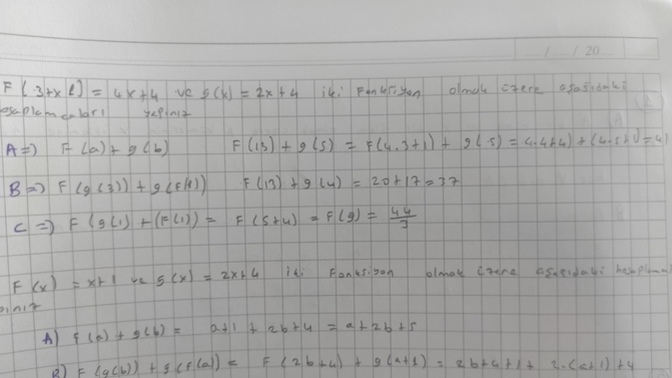 / / 20
F(3+x1) = 4x+4 ve g(x) = 2x+4 iki Fonksiyon olmak üzere aşağıdaki
hesaplamaları yapınız
A=) F(a)+g(b) F(13)+g(5) = F(4.3+1)+g(5) = 4.4+4)+(4.5+1) = 41
B=) F(g(3))+g(F(1)) F(13)+g(4) = 20+17=37
C=) F(g(1)+(F(1)) = F(5+4) = F(9) = 44/3
F(x) = x+1 ve g(x) = 2x+4 iki Fonksiyon olmak üzere aşağıdaki hesaplamal
A) f(a)+g(b) = a+1 + 2b+4 = a+2b+5
B) F(g(b))+g(f(a)) = F(2b+4)+g(a+1) = 2b+4+1+2.(a+1)+4